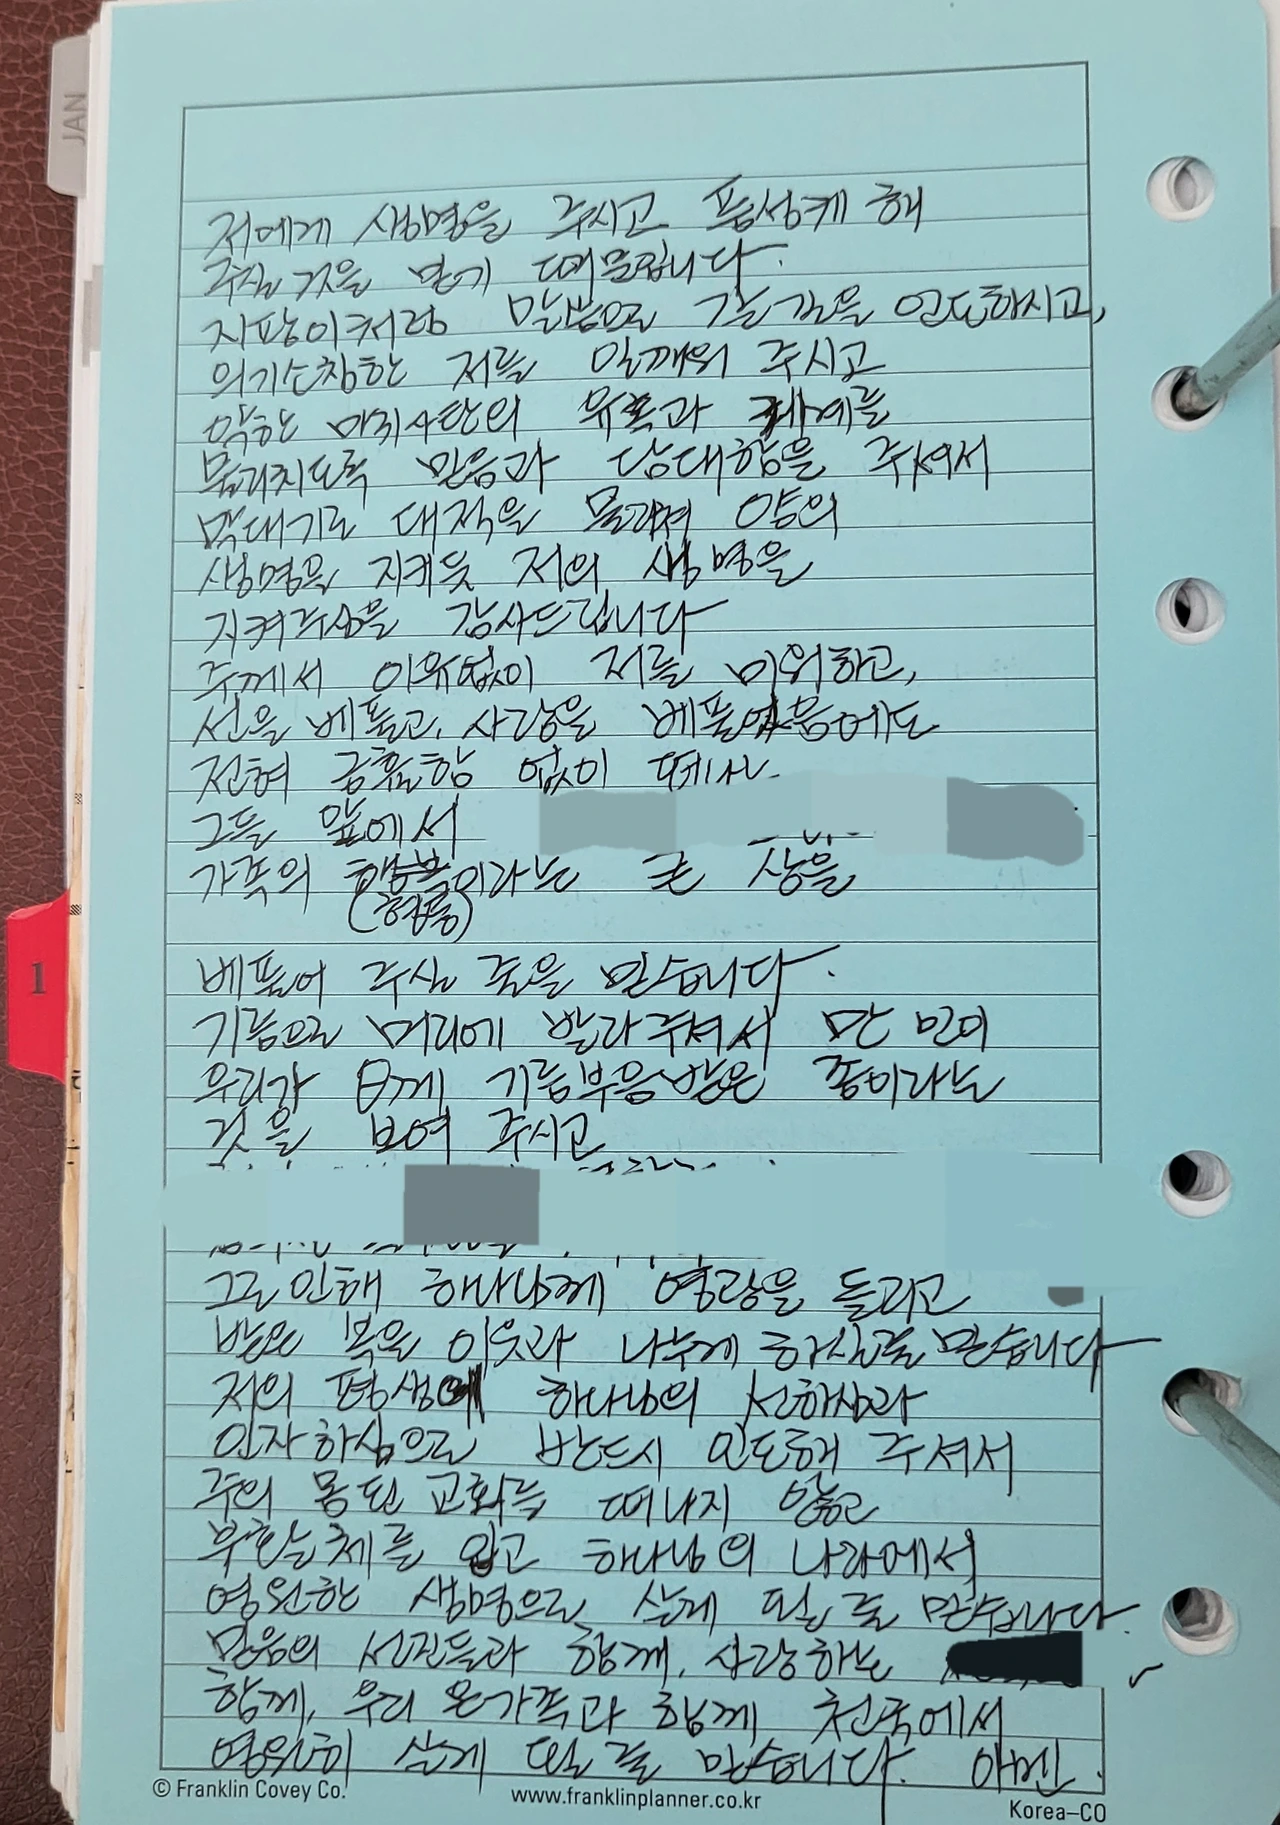 JAN
저에게 생명을 주시고 풍성케 해
주실 것을 믿기 때문입니다.
지팡이처럼 말씀으로 갈 길을 인도하시고,
의기소침한 저를 일깨워 주시고
악한 마귀사단의 유혹과 궤계를
물리치도록 믿음과 담대함을 주셔서
막대기로 대적을 물리쳐 양의
생명을 지키듯 저의 생명을
지켜주심을 감사드립니다
주께서 이유없이 저를 미워하고,
선을 베풀고, 사랑을 베풀었음에도
전혀 긍휼함 없이
그들 앞에서
가족의 행복이라는 큰 상을
(형통)
베풀어 주실 줄을 믿습니다.
기름으로 머리에 발라주셔서 만 민이
우리가 주께 기름부음받은 종이라는
것을 보여 주시고
그로인해 하나님께 영광을 돌리고
받은 복을 이웃과 나누게 하실줄을 믿습니다
저의 평생에 하나님의 선하심과
인자하심으로 반드시 인도해 주셔서
주의 몸된 교회를 떠나지 않고
부활체를 입고 하나님의 나라에서
영원한 생명으로 살게 될 줄 믿습니다.
믿음의 선진들과 함께, 사랑하는
함께, 우리 온가족과 함께 천국에서
영원히 살게 될 줄 믿습니다. 아멘.
1
© Franklin Covey Co.
www.franklinplanner.co.kr
Korea–CO